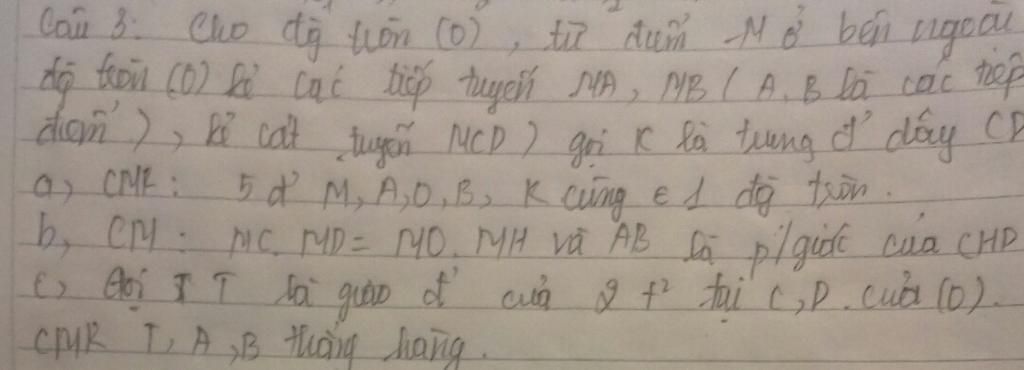 Câu 3: Cho đg tròn (O), từ điểm M ở bên ngoài
đg tròn (O) kẻ các tiếp tuyến MA, MB ( A, B là các tiếp
điểm ), kẻ cát tuyến MCD) gọi K là trung đ' dây CD
a, CMR: 5 đ' M, A, O, B, K cùng ∈ 1 đg tròn.
b, CM: MC. MD = MO. MH và AB là p/giác của CHD
c, Gọi T là giao đ' của 2 t² tại C, D. của (O).
CMR T, A, B thẳng hàng.